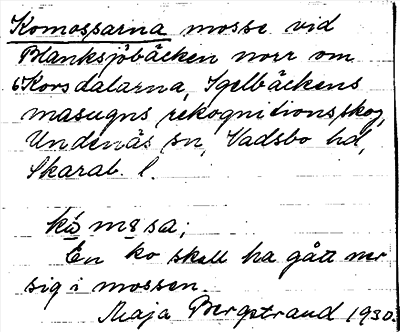 Komossarna mosse vid
Blanksjöbäcken norr om
Korsdalarna, Igelbäckens
masugns rekognitionsskog,
Undenäs sn, Vadsbo hd,
Skarab. l.
kó mɵsa;
En ko skall ha gått ner
sig i mossen.
Maja Bergstrand 1930.